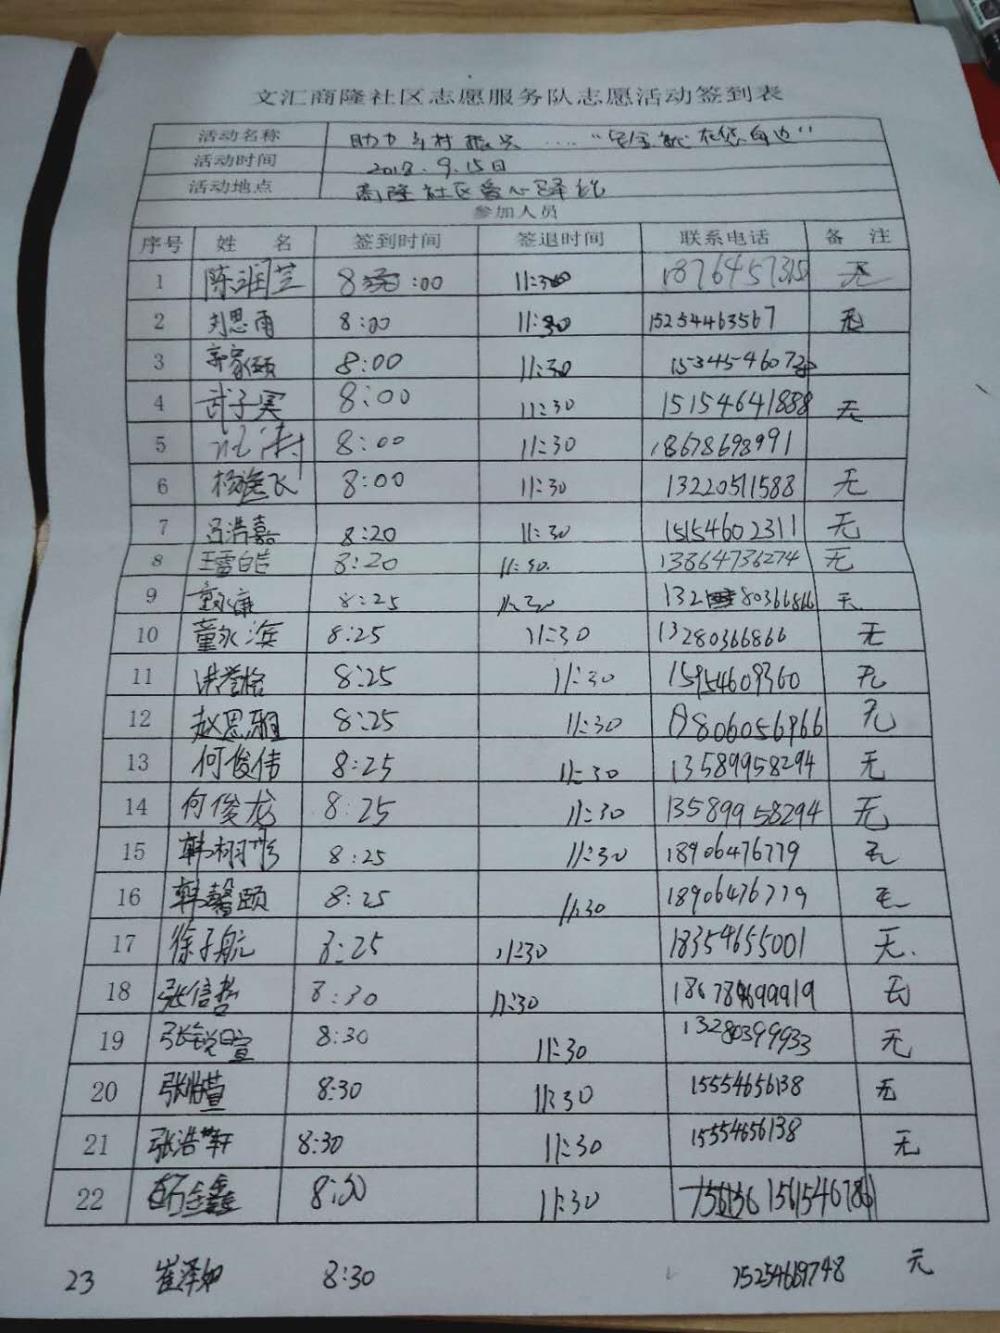 文汇商隆社区志愿服务队志愿活动签到表
活动名称 助力乡村振兴 ...... "安全就在您身边"
活动时间 2018.9.15日
活动地点 商隆社区爱心驿站
参加人员
序号 姓 名 签到时间 签退时间 联系电话 备 注
1 陈润芝 8 :00 11:30 18764573 无
2 刘思雨 8:00 11:30 15254463567 无
3 8:00 11:30
4 武子 8:00 11:30 15154641888 无
5 8:00 11:30 18678698991
6 飞 8:00 11:30 13220511588 无
7 吕浩嘉 8:20 11:30 15154602311 无
8 王雪皓 8:20 11:30. 13864736274 无
9 董永康 8:25 11:30 132 80366866 无
10 董永滨 8:25 11:30 13280366866 无
11 8:25 11:30 15954609360 无
12 赵思雅 8:25 11:30 无
13 何俊伟 8:25 11:30 13589958294 无
14 何俊龙 8:25 11:30 13589958294 无
15 韩栩 8:25 11:30 18906476779 无
16 韩馨颐 8:25 11:30 18906476779 无
17 徐子航 8:25 11:30 18354655001 无.
18 张信哲 8:30 11:30 无
19 张锐暄 8:30 11:30 13280399933 无
20 张 萱 8:30 11:30 15554656138 无
21 张浩轩 8:30 11:30 15554656138 无
22 鑫 8:30 11:30
23 崔泽如 8:30 15254619748 无